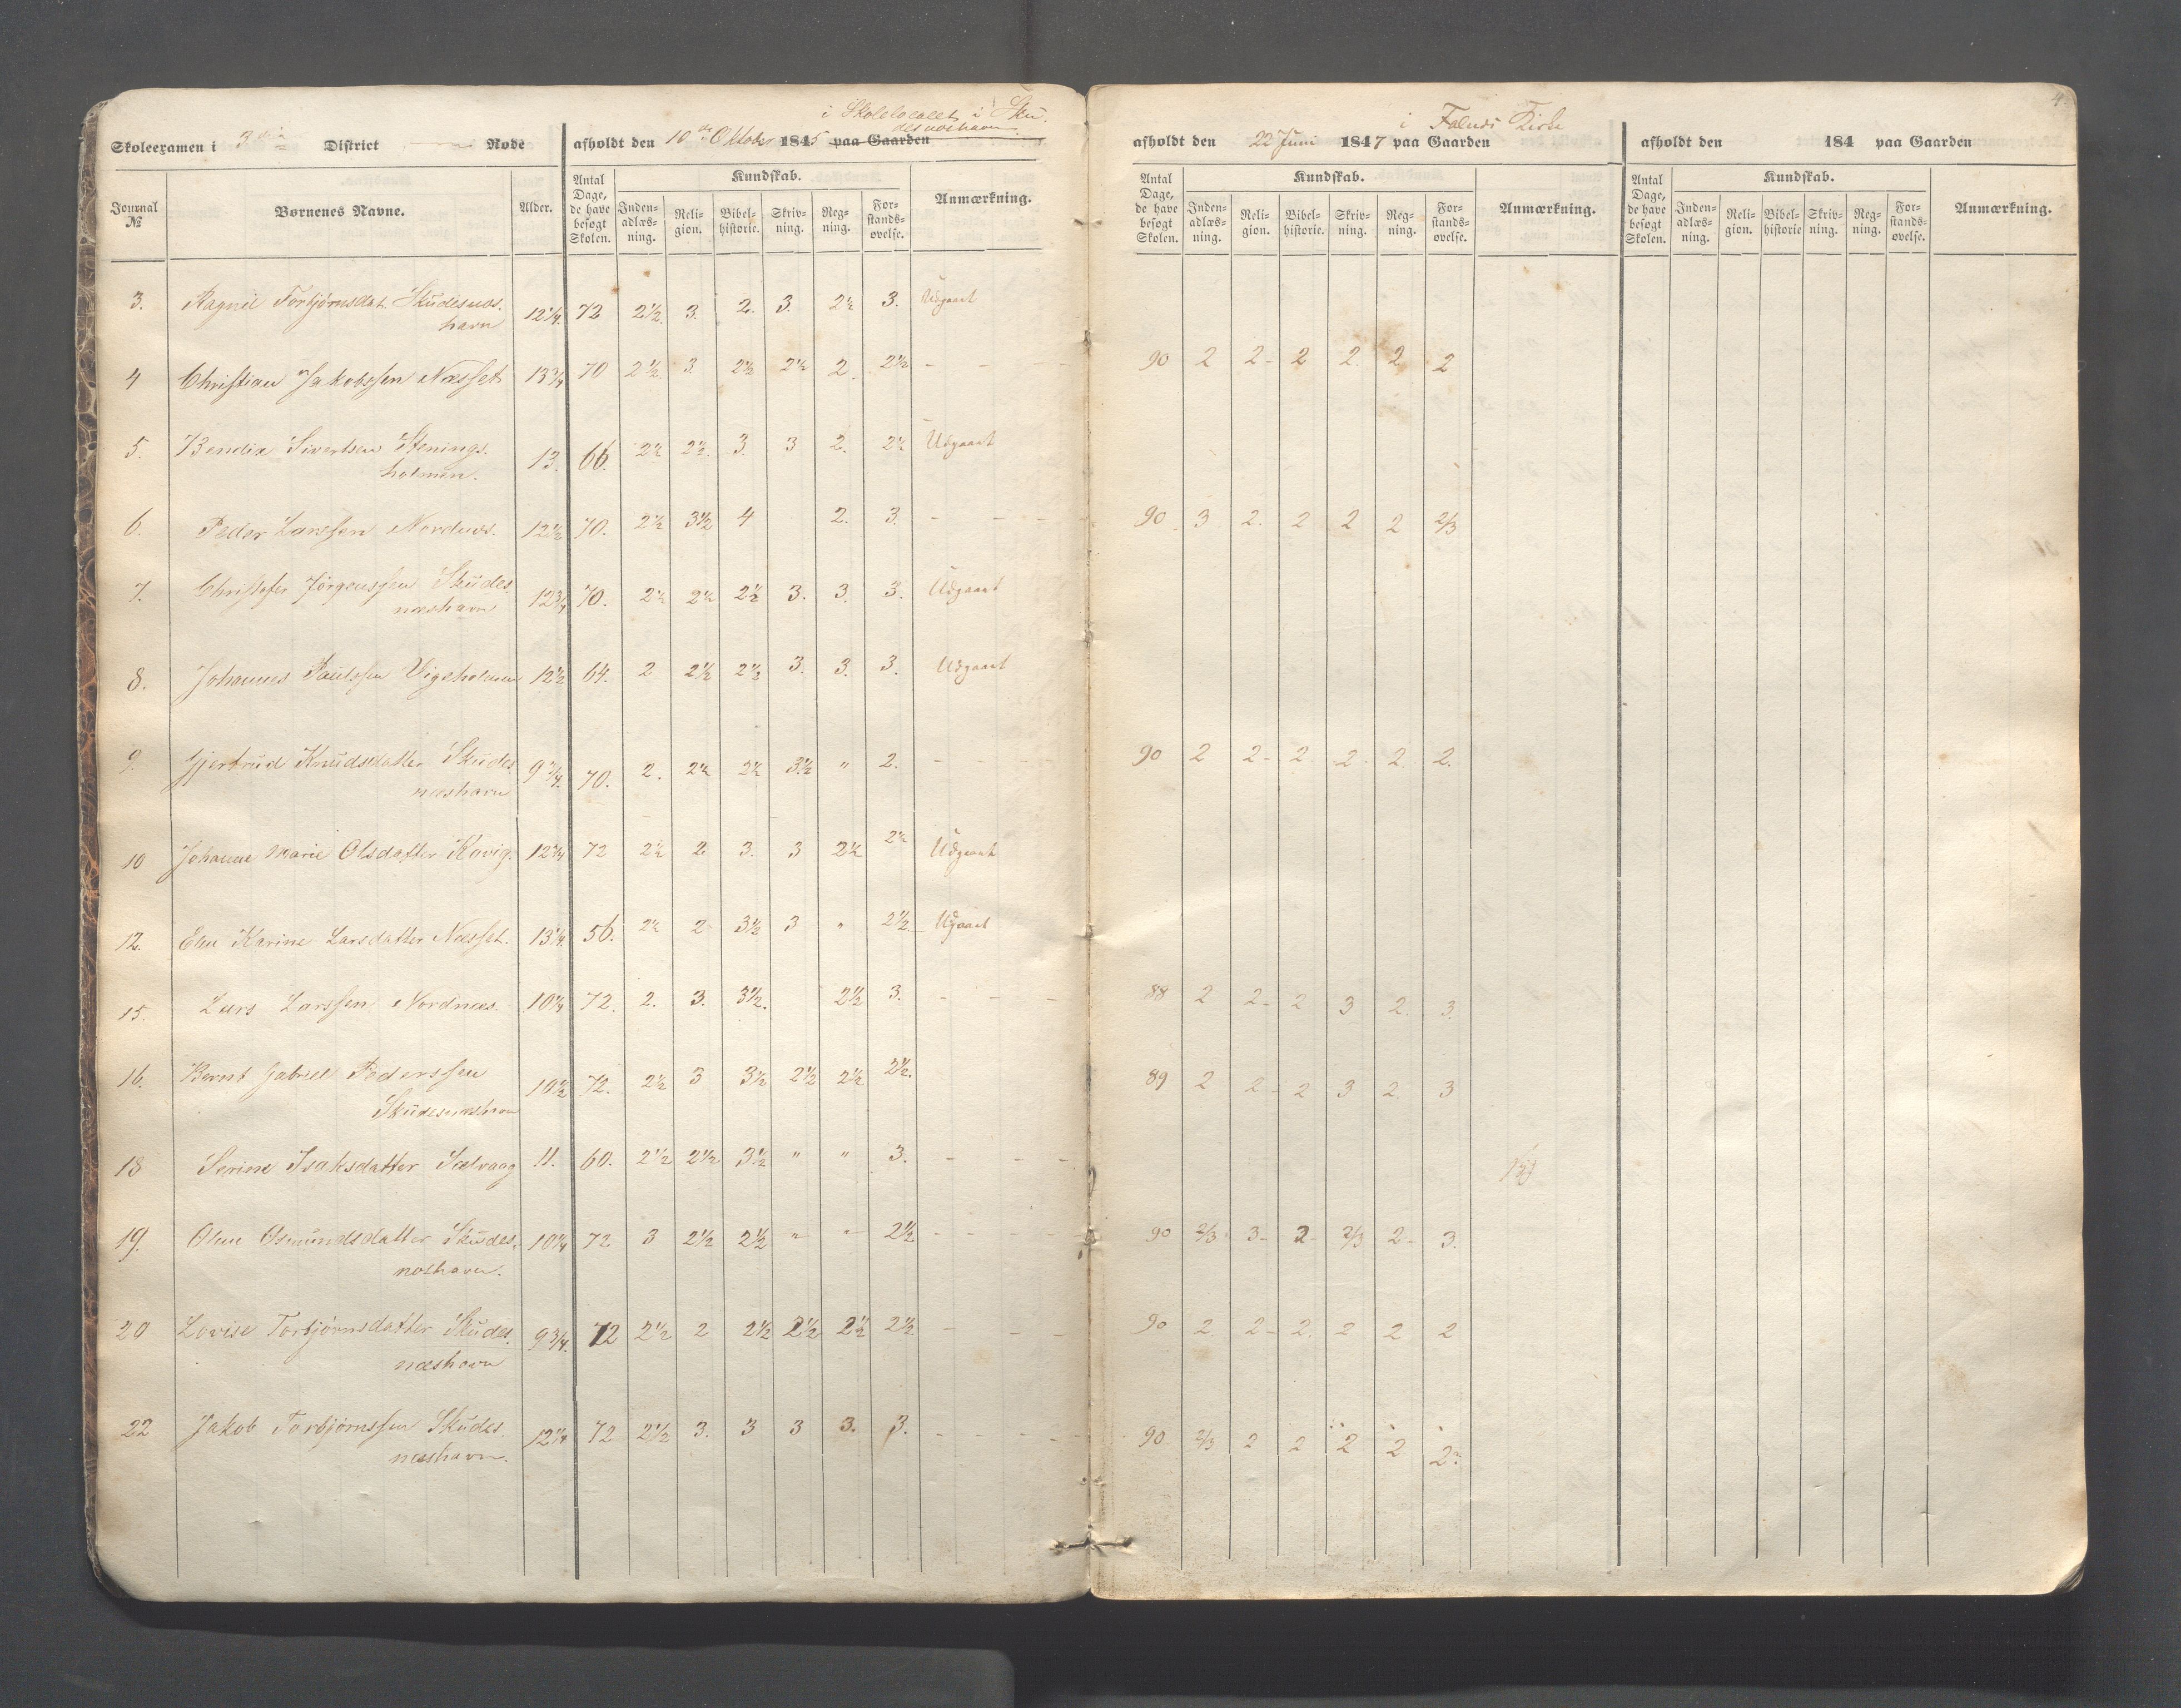 i Skolelocalet i Sku-
desnæshavn
Skoleexamen i 3die District — Rode afholdt den 10de Oktober 1845 paa Gaarden
Journal № Børnenes Navne. Alder. Antal Dage, de have besøgt Skolen. Kundskab. Inden-adlæs-ning. Reli-gion. Bibel-historie. Skriv-ning. Reg-ning. For-stands-øvelse. Anmærkning.
3. Ragnil Torbjørnsdat. Skudesnæs-
havn 12 1/4. 72 2 1/2. 3. 2. 3. 2 1/2 3. Udgaaet
4 Christian Jakobssen Næsset 13 3/4 70 2 1/2. 3. 2 1/2 2 1/2 2. 2 1/2 - - -
5. Bendix Sivertsen Stenings-
holmen. 13. 66. 2 1/2 2 1/2. 3. 3 2. 2 1/2 Udgaaet
6. Peder Larssen Nordnæs. 12 1/2 70. 2 1/2 3 1/2 4 2. 3. - - -
7. Christofer Jörgenssen Skudes
næshavn 12 3/4 70. 2 1/2 2 1/2 2 1/2 3. 3. 3. Udgaaet
8. Johannes Paulssen Vigeholmen 12 1/2 64. 2 2 1/2 2 1/2 3. 3. 3. Udgaaet
9. Gjertrud Knudsdatter Skudes
næshavn 9 3/4. 70. 2. 2 1/2 2 1/2 3 1/2 " 2. - - -
10 Johanne Marie Olsdatter Kovig. 12 3/4 72 2 1/2 2 3. 3 2 1/2 2 1/2 Udgaaet
12. Elen Karine Larsdatter Næsset. 13 1/4. 56. 2 1/2 2 3 1/2 3 " 2 1/2 Udgaaet
15. Lars Larssen Nordnæs. 10 1/4 72. 2. 3. 3 1/2. 2 1/2 3. - - -
16. Bernt Gabriel Pederssen
Skudesnæshavn 10 1/2 72. 2 1/2 3 3 1/2 2 1/2 2 1/2 2 1/2.
18 Serine Isaksdatter Sælvaag 11. 60. 2 1/2 2 1/2 3 1/2 " " 3. - - -
19. Oline Osmundsdatter Skudes-
næshavn. 10 1/4 72 3 2 1/2 2 1/2 " " 2 1/2 - - - -
20 Lovise Torbjörnsdatter Skudes.
næshavn 9 3/4. 72 2 1/2 2 2 1/2 2 1/2 2 1/2 2 1/2 - - -
22 Jakob Torbjørnssen Skudes.
næshavn. 12 1/4 72 2 1/2 3. 3 3 3. 3. - - - -
4.
i Falnæs Kirke
afholdt den 22 Juni 1847 paa Gaarden
Antal Dage, de have besøgt Skolen. Kundskab. Inden-adlæs-ning. Reli-gion. Bibel-historie. Skriv-ning. Reg-ning. For-stands-øvelse. Anmærkning.
90 2 2- 2 2. 2 2
90. 3 2. 2 2 2 2/3
90 2 2- 2 2- 2. 2.
88 2 2- 2 3 2. 3.
89 2 2- 2 3 2. 3
90 2/3 3- 2- 2/3 2- 3.
90 2 2- 2. 2 2 2
90 2/3 2 2 2 2 2.
afholdt den 184 paa Gaarden
Antal Dage, de have besøgt Skolen. Kundskab. Inden-adlæs-ning. Reli-gion. Bibel-historie Skriv-ning. Reg-ning. For-stands-øvelse. Anmærkning.